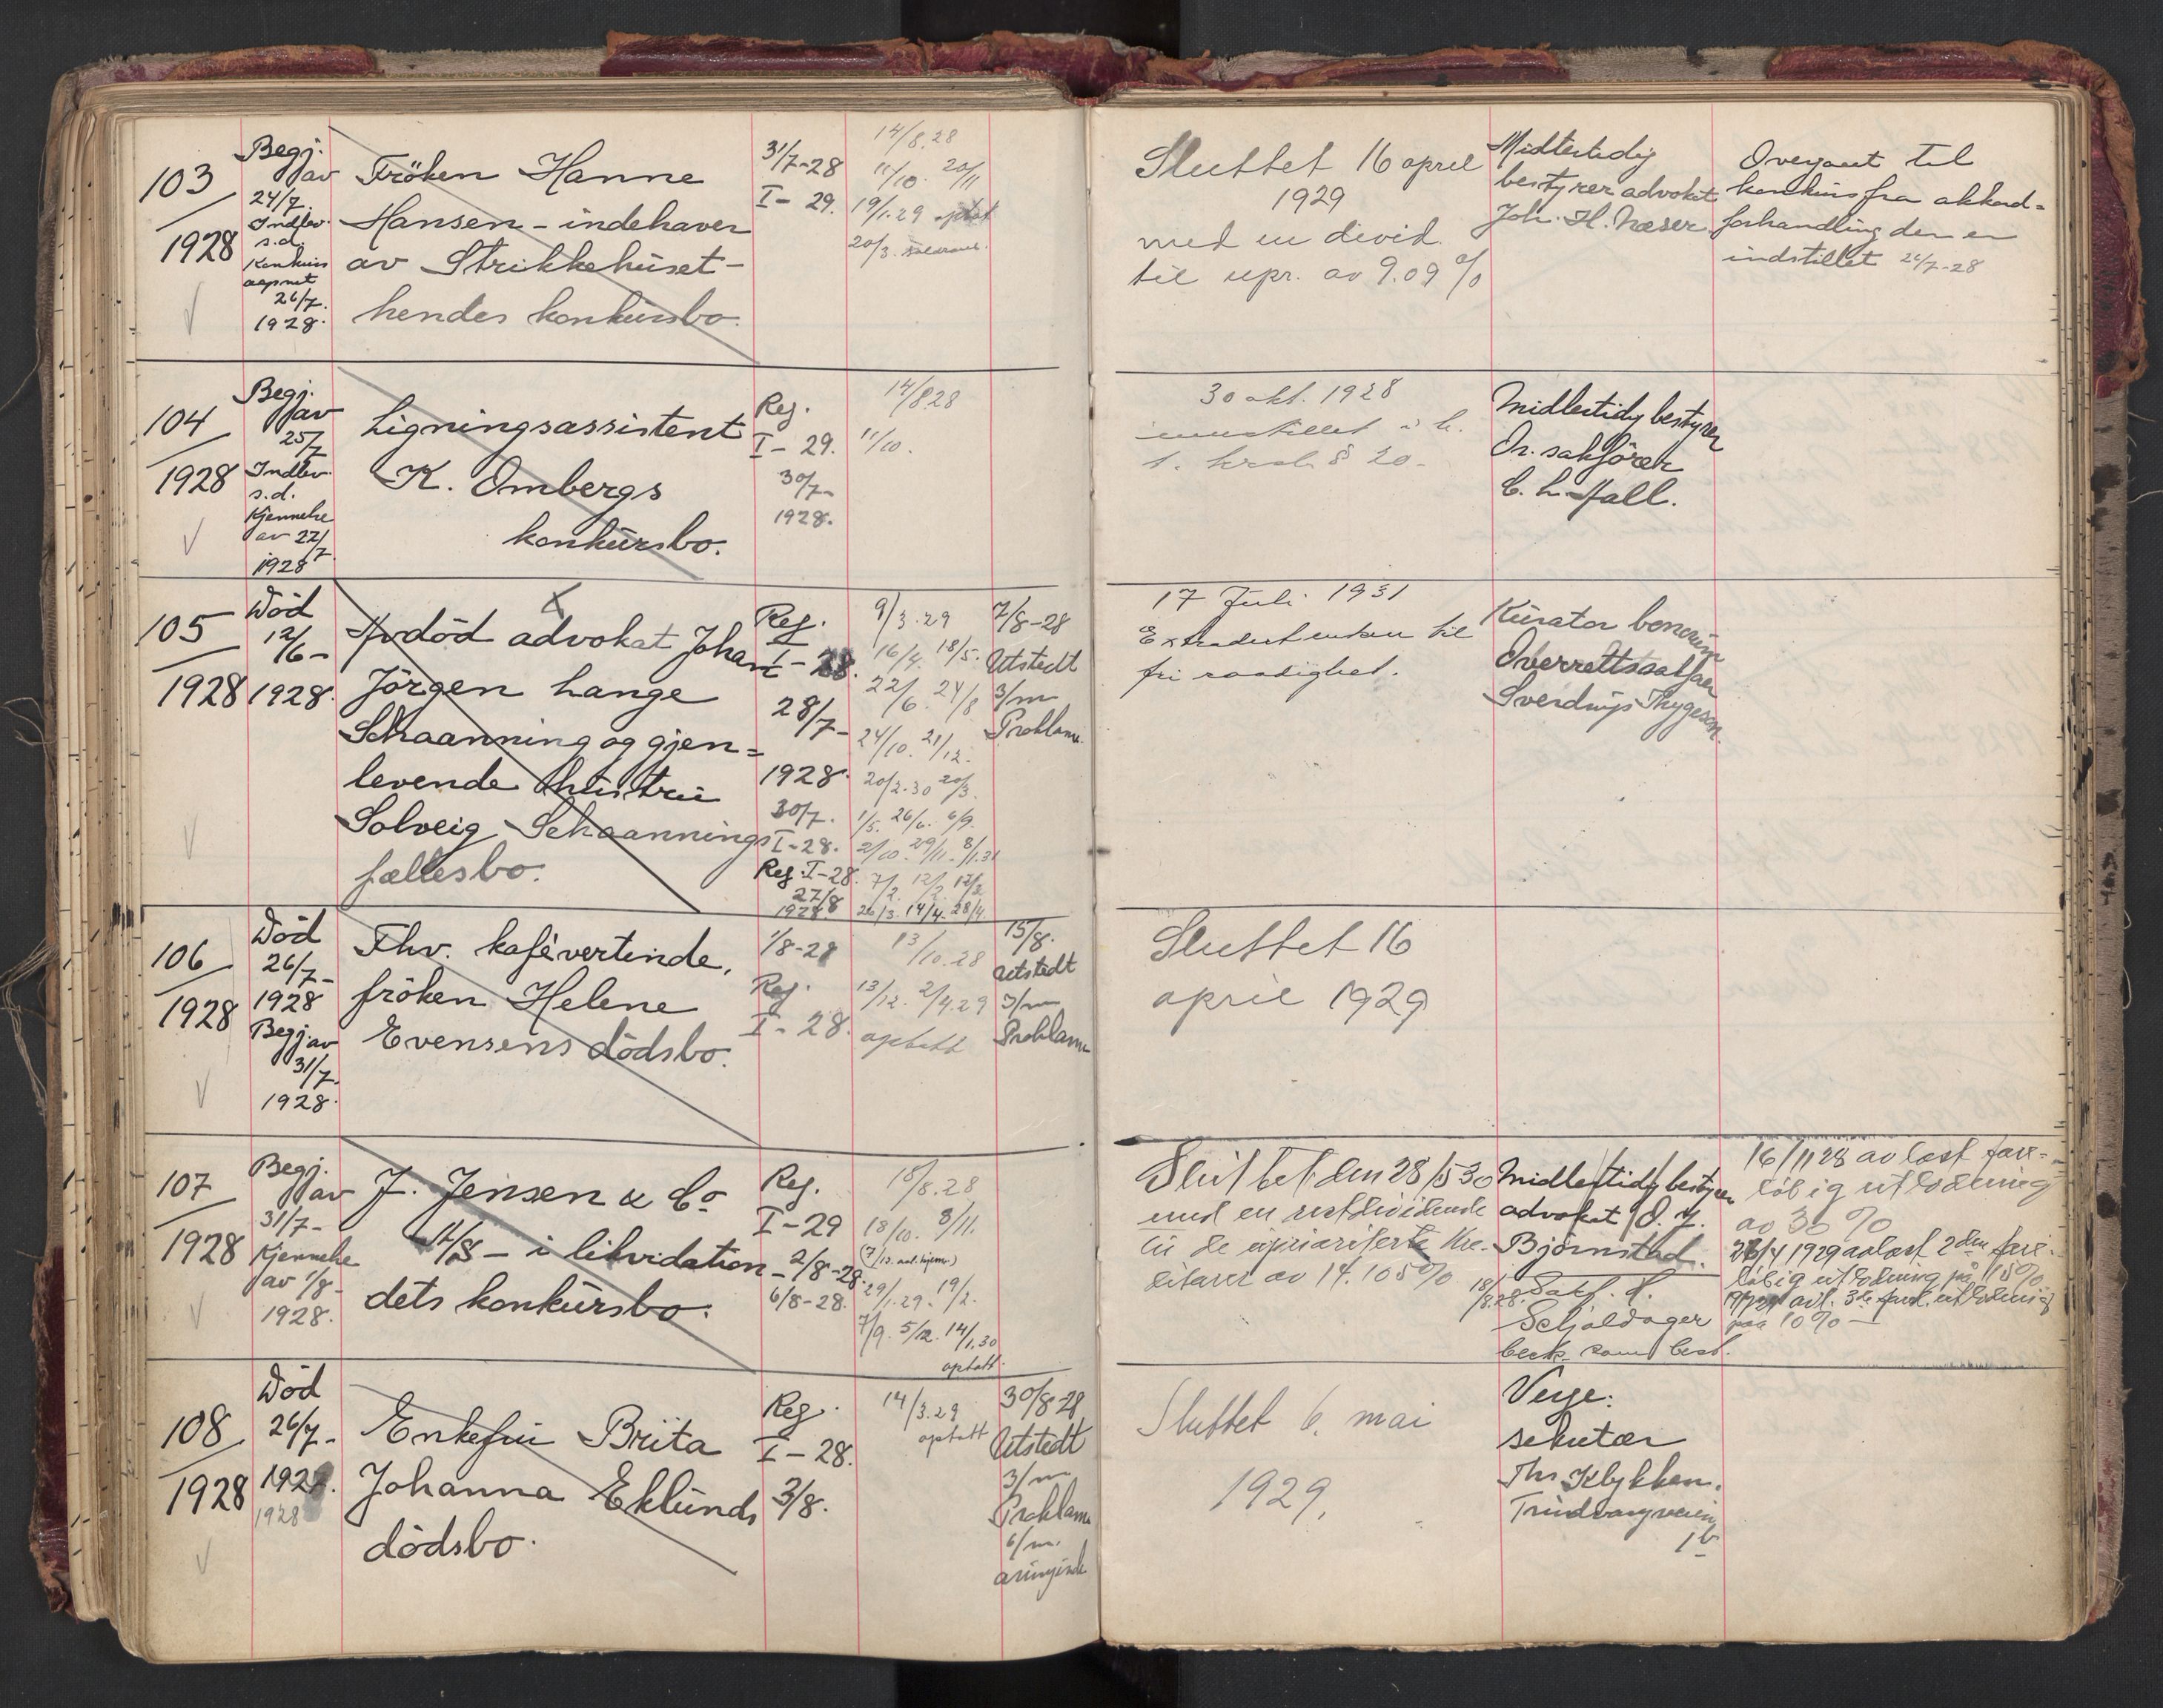 103
1928
Begj.
av
24/7.
Indlev.
s.d.
Konkurs
aapnet
26/7.
1928.
Fröken Hanne
Hansen - indehaver
av Strikkehuset -
hendes konkursbo.
31/7-28
I - 29.
14/8.28
11/10. 20/11
19/1.29 optat
20/3.
Sluttet 16 april
1929
med en divid.
til upr. av 9.09 %
Midlertidig
bestyrer advokat
Joh. H. Næser
Overgaaet til
konkurs fra akkord=
forhandling den er
indstillet 24/7-28
104
1928
Begj.
av
25/7
Indlev.
s.d.
Kjennelse
av 27/7
1928
Ligningsassistent
K. Ombergs
konkursbo.
Reg.
I - 29.
30/7-
1928.
14/8.28
11/10.
30 okt. 1928
innstillet i h.
t. krsl. § 20.
Midlertidig bestyrer
Or. sakförer
C. L. Hall.
105
1928
Död
12/6-
1928.
Avdöd advokat Johan
Jörgen Lange
Schaanning og gjen=
levende hustru
Solveig Schaannings
fællesbo.
Reg.
I - 28.
28/7-
1928.
30/7.
I - 28.
Reg. I - 28.
27/8
1928.
9/3.29
16/4. 18/5.
22/6. 24/8
24/10. 21/12.
20/2.30 20/3.
1/5. 26/6. 6/9.
2/10. 29/11. 8/1.31
7/2. 12/2. 12/3.
26/3. 14/4. 28/4.
7/8-28
Utstedt
3/m
Proklama
17 Juli 1931
Extradert enken til
fri raadighet.
Kurator bonorum
Overrettssakfører
Sverdrup Thygeson
106
1928
Död
26/7-
1928
Begj. av
31/7.
1928.
Fhv. kafévertinde,
fröken Helene
Evensens dödsbo.
1/8-28
Reg.
I - 28.
13/10.28
13/12. 2/4.29
optatt
15/8.
Utstedt
3/m
Proklama
Sluttet 16
april 1929
107
1928
Begj.
av
31/7-
Kjennelse
av 1/8-
1928.
J. Jensen & Co
A/S - i likvidation -
dets konkursbo.
Reg.
I - 29
2/8-28.
6/8-28.
18/8.28
18/10. 8/11.
29/1.29. 19/2.
7/9. 5/12. 14/1.30
optatt.
Sluttet den 28/5 30
med en restdividende
til de uprioriterte kre-
ditorer av 14.105 %
Midlertidig bestyrer
advokat O. J.
Björnstad.
18/8.28. Sakf. H.
Schjoldager
besk. som best.
16/11 28 avlast fore-
löbig utlodning
av 30 %
23/4 1929 avlast 2den fore-
löbig utlodning på 15 %
avl. 3de forel. utlodning
paa 10 % -
108
1928
Död
26/7-
1928.
1928
Enkefru Brita
Johanna Eklunds
dödsbo.
Reg.
I - 28.
3/8.
14/3.29
optatt
30/8-28
Utstedt
3/m
Proklama
6/m.
Sluttet 6. mai
1929.
Verge:
sekretær
Ths Klykken.
Trudvangveien
1b